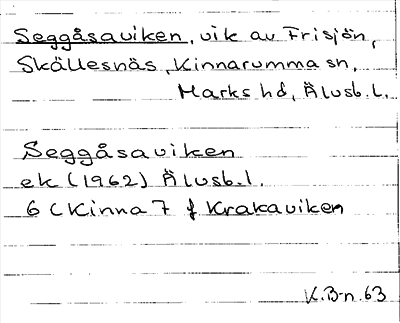 Seggåsaviken, vik av Frisjön,
Skällesnäs, Kinnarumma sn,
Marks hd, Älvsb. l.
Seggåsaviken
ek (1962) Älvsb. l.
6 C Kinna 7 f Krakaviken
K.B-n. 63